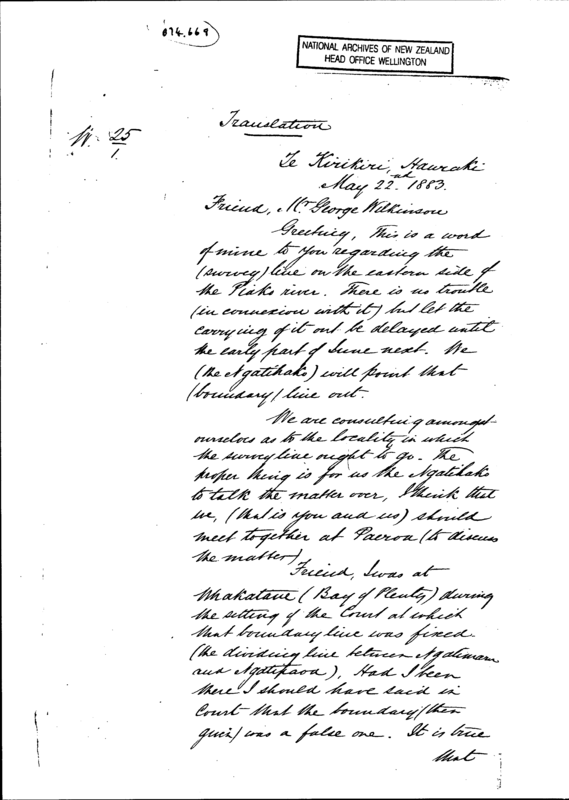 074.669
NATIONAL ARCHIVES OF NEW ZEALAND
HEAD OFFICE WELLINGTON
Translation
25
1.
Te Kirikiri, Hauraki
May 22nd. 1883.
Friend, Mr George Wilkinson
Greeting, This is a word
of mine to you regarding the
(survey) line on the eastern side of
the Piako river. There is no trouble
(in connexion with it) but let the
carrying of it out be delayed until
the early part of June next. We
(the Ngatihako) will point that
(boundary) line out.
We are consulting amongst
ourselves as to the locality in which
the survey line ought to go. The
proper thing is for us the Ngatihako
to talk the matter over, I think that
we, (that is you and us) should
meet together at Paeroa (to discuss
the matter)
Friend, I was at
Whakatane (Bay of Plenty) during
the sitting of the Court at which
that boundary line was fixed
(the dividing line between Ngatimaru
and Ngatipaoa), Had I been
there I should have said in
Court that the boundary (then
given) was a false one. It is true
that